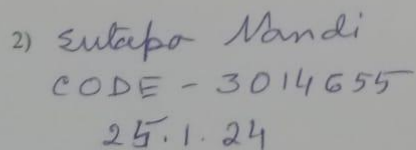 2) Sutapa Nandi
CODE - 3014655
25.1.24